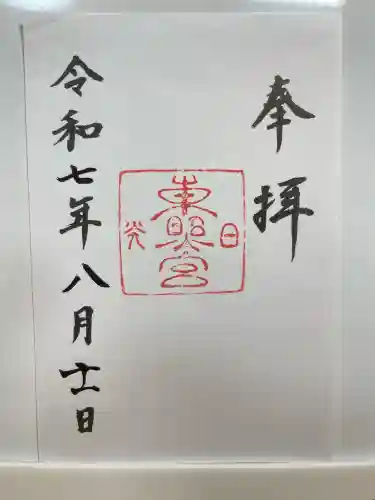 奉拝
日光
東照宮
令和七年八月十二日